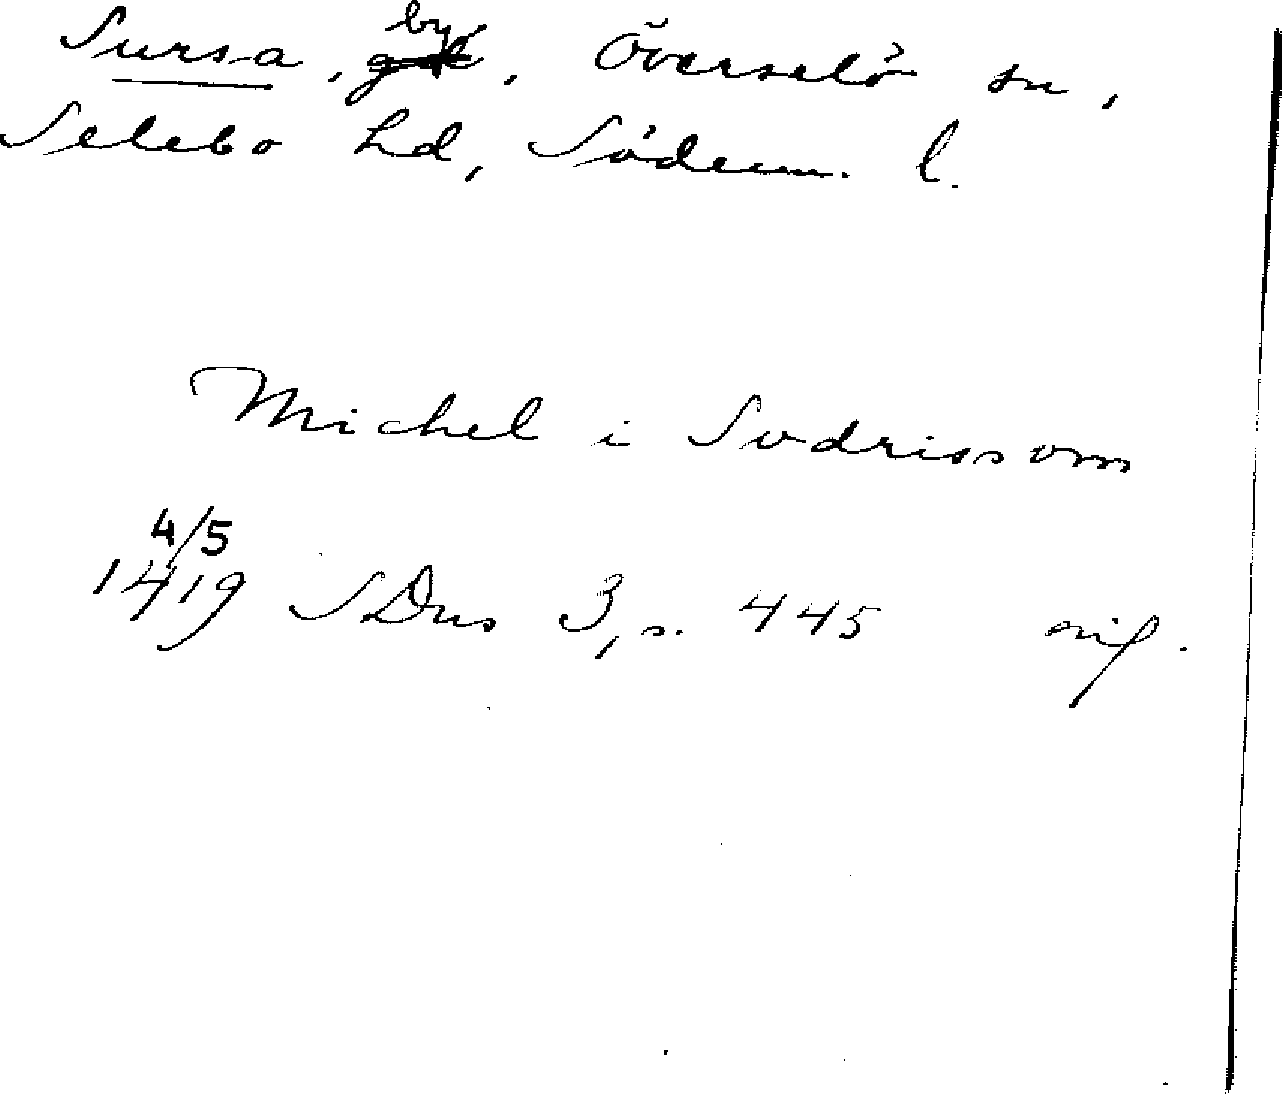 Sursa, by, Överselö sn,
Selebo hd, Söderm. l.
Michel i Sudrissom
4/5
1419 SDns 3, s. 445 sigf.